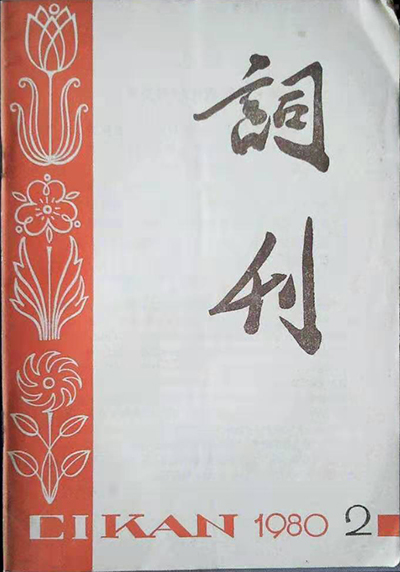 詞刊
CI KAN 1980 2